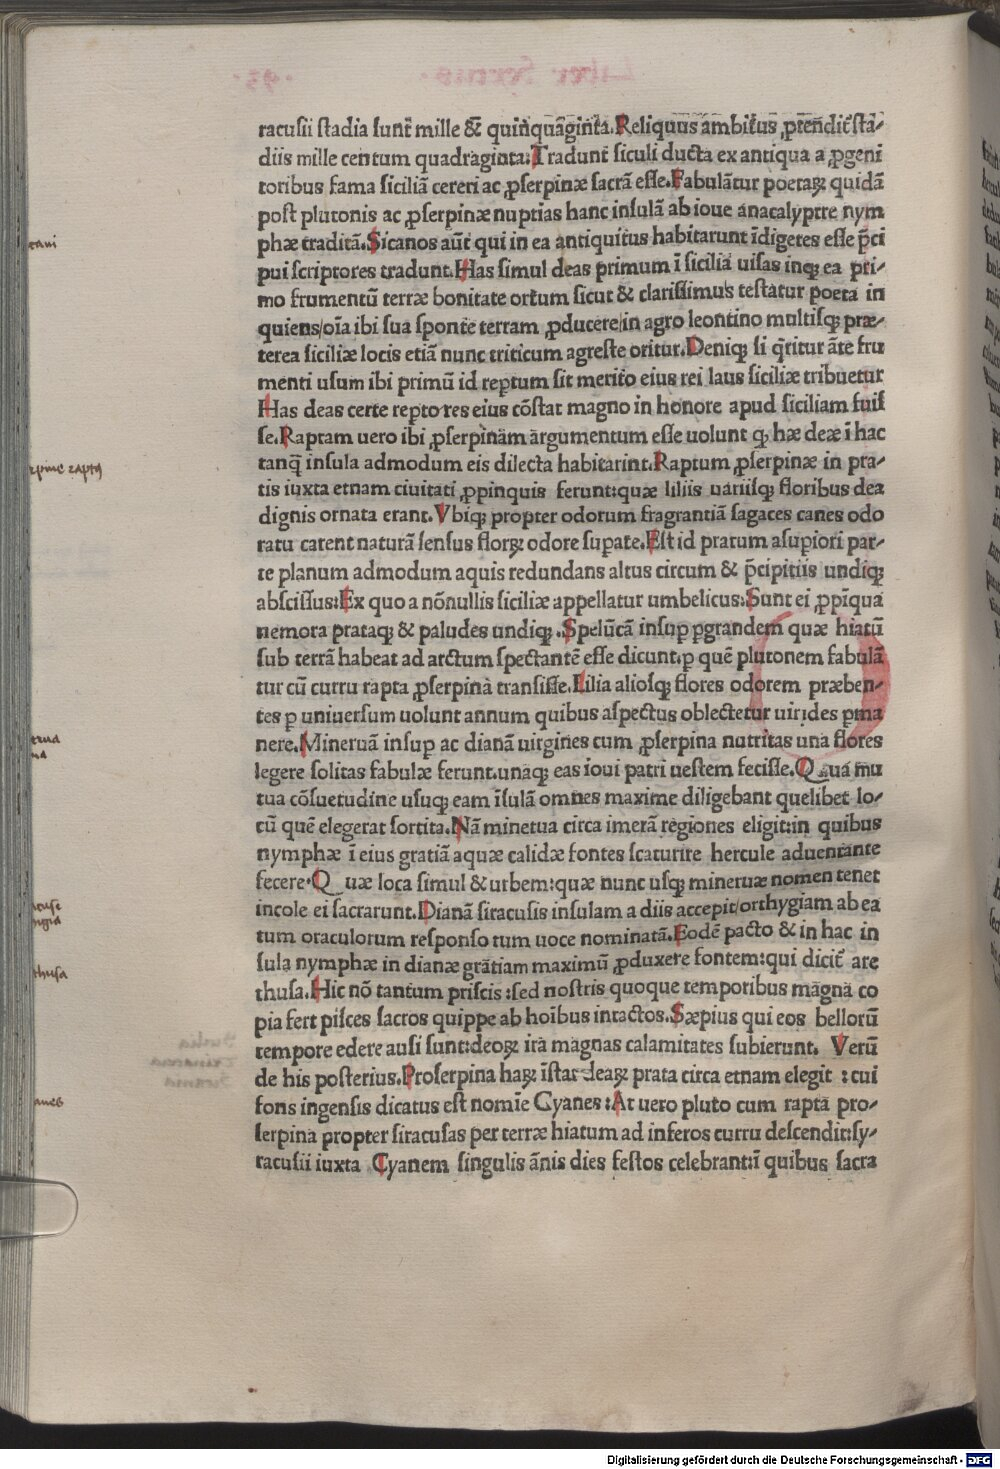 racusii stadia sunt̃ mille & quinquãginta. Reliquus ambitus ꝓtendit̃ sta⸗
diis mille centum quadraginta: Tradunt siculi ducta ex antiqua a ꝓgeni
toribus fama siciliã cereri ac ꝓserpinæ sacrã esse. Fabulãtur poetaꝝ quidã
post plutonis ac ꝓserpinæ nuptias hanc insulã ab ioue anacalyptre nym
phæ traditã. Sicanos aũt qui in ea antiquitus habitarunt ĩdigetes esse p̃ci
pui scriptores tradunt. Has simul deas primum ĩ sicilia uisas inqꝫ ea pri⸗
mo frumentũ terræ bonitate ortum sicut & clarissimus testatur poeta in
quiens/oĩa ibi sua sponte terram ꝓducere/in agro leontino multisqꝫ præ⸗
terea siciliæ locis etiã nunc triticum agreste oritur. Deniqꝫ si q̃ritur ãte fru
menti usum ibi primũ id reꝑtum sit merito eius rei laus siciliæ tribuetur
Has deas certe reꝑtores eius cõstat magno in honore apud siciliam fuis
se. Raptam uero ibi ꝓserpinam argumentum esse uolunt qꝫ hæ deæ ĩ hac
tanq̃ insula admodum eis dilecta habitarint. Raptum ꝓserpinæ in pra⸗
tis iuxta etnam ciuitati ꝓpinquis ferunt: quæ liliis uariisqꝫ floribus dea
dignis ornata erant. Vbiqꝫ propter odorum fragrantiã sagaces canes odo
ratu carent naturã sensus floꝝ odore suꝑate. Est id pratum a suꝑiori par⸗
te planum admodum aquis redundans altus circum & p̃cipitiis undiqꝫ
abscissus: Ex quo a nõnullis siciliæ appellatur umbelicus: Sunt ei ꝓpĩqua
nemora prataqꝫ & paludes undiqꝫ. Spelũcã insuꝑ ꝑgrandem quæ hiatũ
sub terrã habeat ad arctum spectantẽ esse dicunt: ꝑ quẽ plutonem fabulã
tur cũ curru rapta ꝓserpina transisse. Lilia aliosqꝫ flores odorem præben⸗
tes ꝑ uniuersum uolunt annum quibus aspectus oblectetur uirides ꝑma
nere. Mineruã insuꝑ ac dianã uirgines cum ꝓserpina nutritas una flores
legere solitas fabulæ ferunt. unaqꝫ eas ioui patri uestem fecisse. Qua mu
tua cõsuetudine usuqꝫ eam ĩsulã omnes maxime diligebant quelibet lo⸗
cũ quẽ elegerat sortita. Nã minetua circa imerã regiones eligit: in quibus
nymphæ ĩ eius gratiã aquæ calidæ fontes scaturire hercule aduentante
fecere. Quæ loca simul & urbem: quæ nunc usqꝫ mineruæ nomen tenet
incole ei sacrarunt. Dianã siracusis insulam a diis accepit/orthygiam ab ea
tum oraculorum responso tum uoce nominatã. Eodẽ pacto & in hac in
sula nymphæ in dianæ gratiam maximũ ꝓduxere fontem: qui dicit̃ are
thusa. Hic nõ tantum priscis: sed nostris quoque temporibus magna co
pia fert pisces sacros quippe ab hoĩbus intactos. Sæpius qui eos bellorũ
tempore edere ausi sunt: deoꝝ ira magnas calamitates subierunt. Verũ
de his posterius. Proserpina haꝝ istar deaꝝ prata circa etnam elegit: cui
fons ingensis dicatus est nomĩe Cyanes: At uero pluto cum rapta pro⸗
serpina propter siracusas per terræ hiatum ad inferos curru descendit: sy⸗
racusii iuxta Cyanem singulis ãnis dies festos celebrant: ĩ quibus sacra
Digitalisierung gefördert durch die Deutsche Forschungsgemeinschaft - DFG